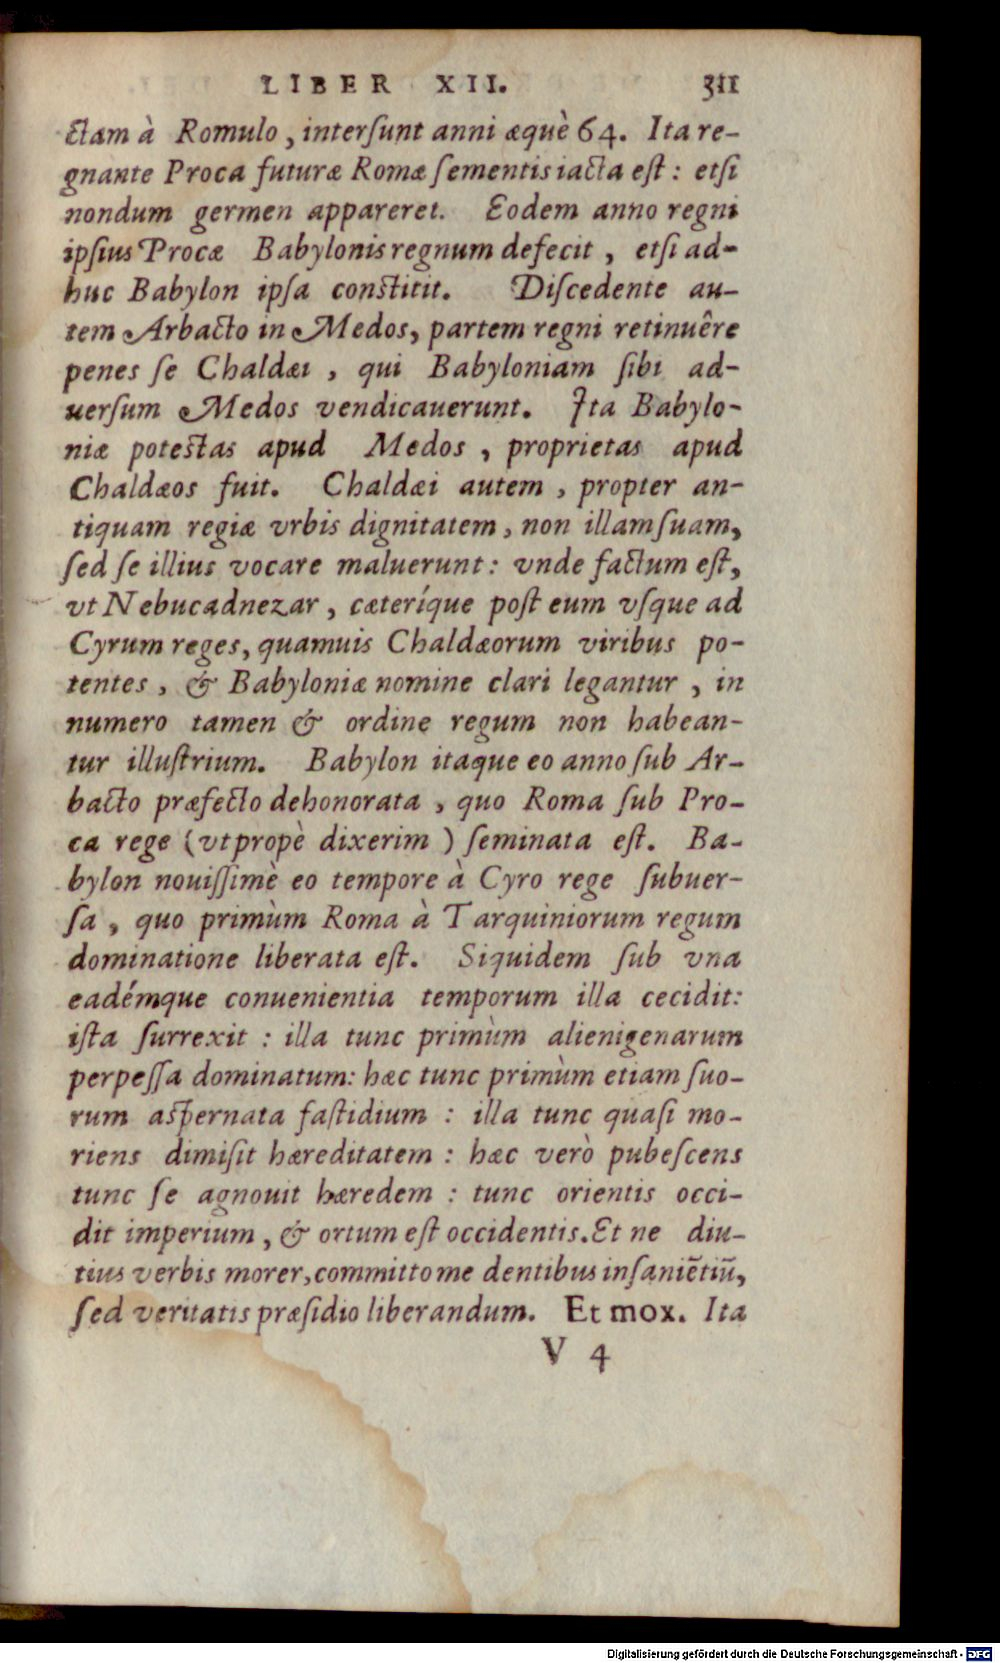 LIBER XII. 311
ctam à Romulo, intersunt anni æquè 64. Ita re-
gnante Proca futuræ Romæ sementis iacta est: etsi
nondum germen appareret. Eodem anno regni
ipsius Procæ Babylonis regnum defecit, etsi ad-
huc Babylon ipsa constitit. Discedente au-
tem Arbacto in Medos, partem regni retinuêre
penes se Chaldæi, qui Babyloniam sibi ad-
uersum Medos vendicauerunt. Ita Babylo-
niæ potestas apud Medos, proprietas apud
Chaldæos fuit. Chaldæi autem, propter an-
tiquam regiæ vrbis dignitatem, non illam suam,
sed se illius vocare maluerunt: vnde factum est,
vt Nebucadnezar, cæteríque post eum vsque ad
Cyrum reges, quamuis Chaldæorum viribus po-
tentes, & Babyloniæ nomine clari legantur, in
numero tamen & ordine regum non habean-
tur illustrium. Babylon itaque eo anno sub Ar-
bacto præfecto dehonorata, quo Roma sub Pro-
ca rege (vt propè dixerim) seminata est. Ba-
bylon nouissimè eo tempore à Cyro rege subuer-
sa, quo primùm Roma à Tarquiniorum regum
dominatione liberata est. Siquidem sub vna
eadémque conuenientia temporum illa cecidit:
ista surrexit: illa tunc primùm alienigenarum
perpessa dominatum: hæc tunc primùm etiam suo-
rum aspernata fastidium: illa tunc quasi mo-
riens dimisit hæreditatem: hæc verò pubescens
tunc se agnouit hæredem: tunc orientis occi-
dit imperium, & ortum est occidentis. Et ne diu-
tius verbis morer, committo me dentibus insaniētiū,
sed veritatis præsidio liberandum. Et mox. Ita
V 4
Digitalisierung gefördert durch die Deutsche Forschungsgemeinschaft - DFG